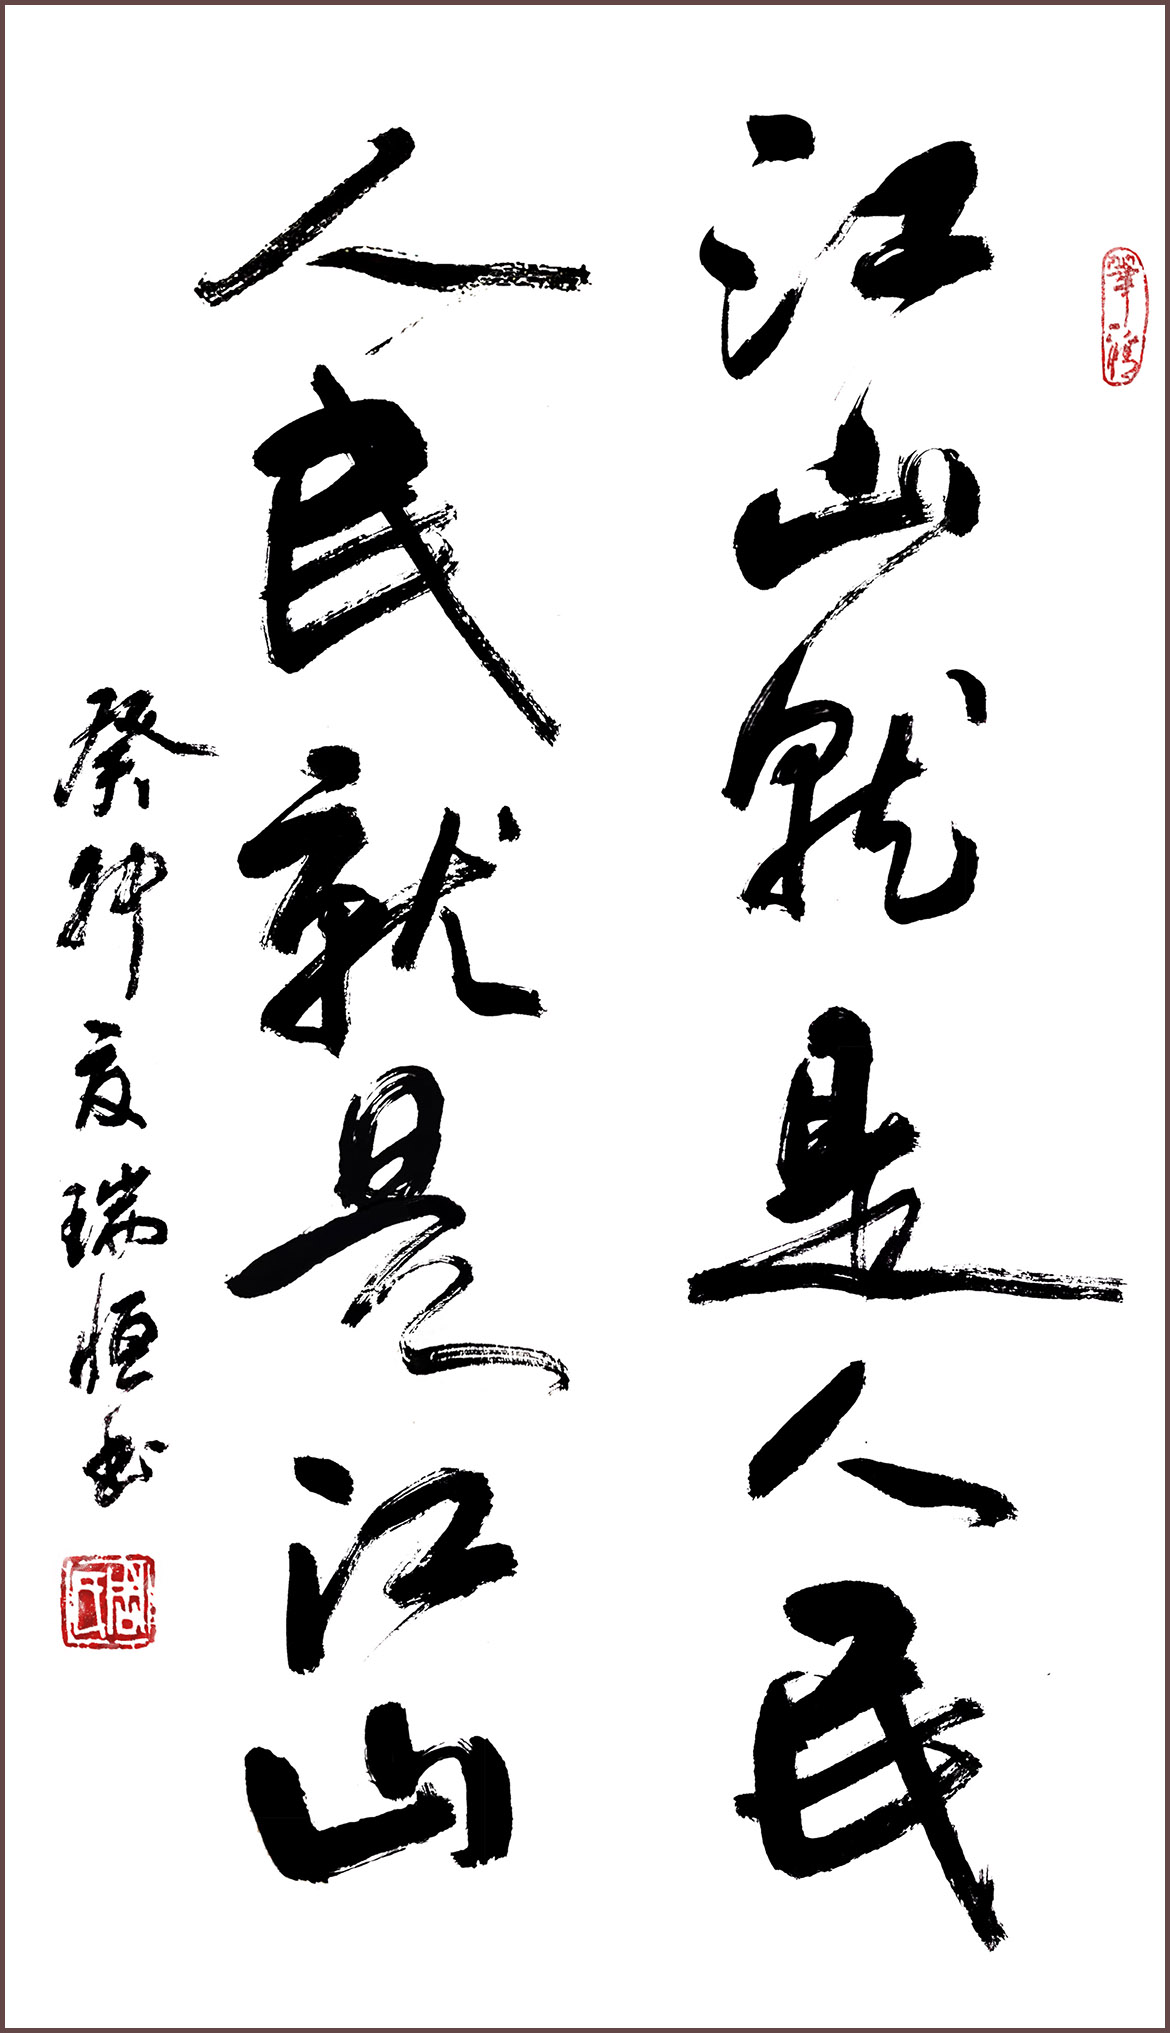 江山就是人民
人民就是江山
癸卯夏瑞恒书
周氏